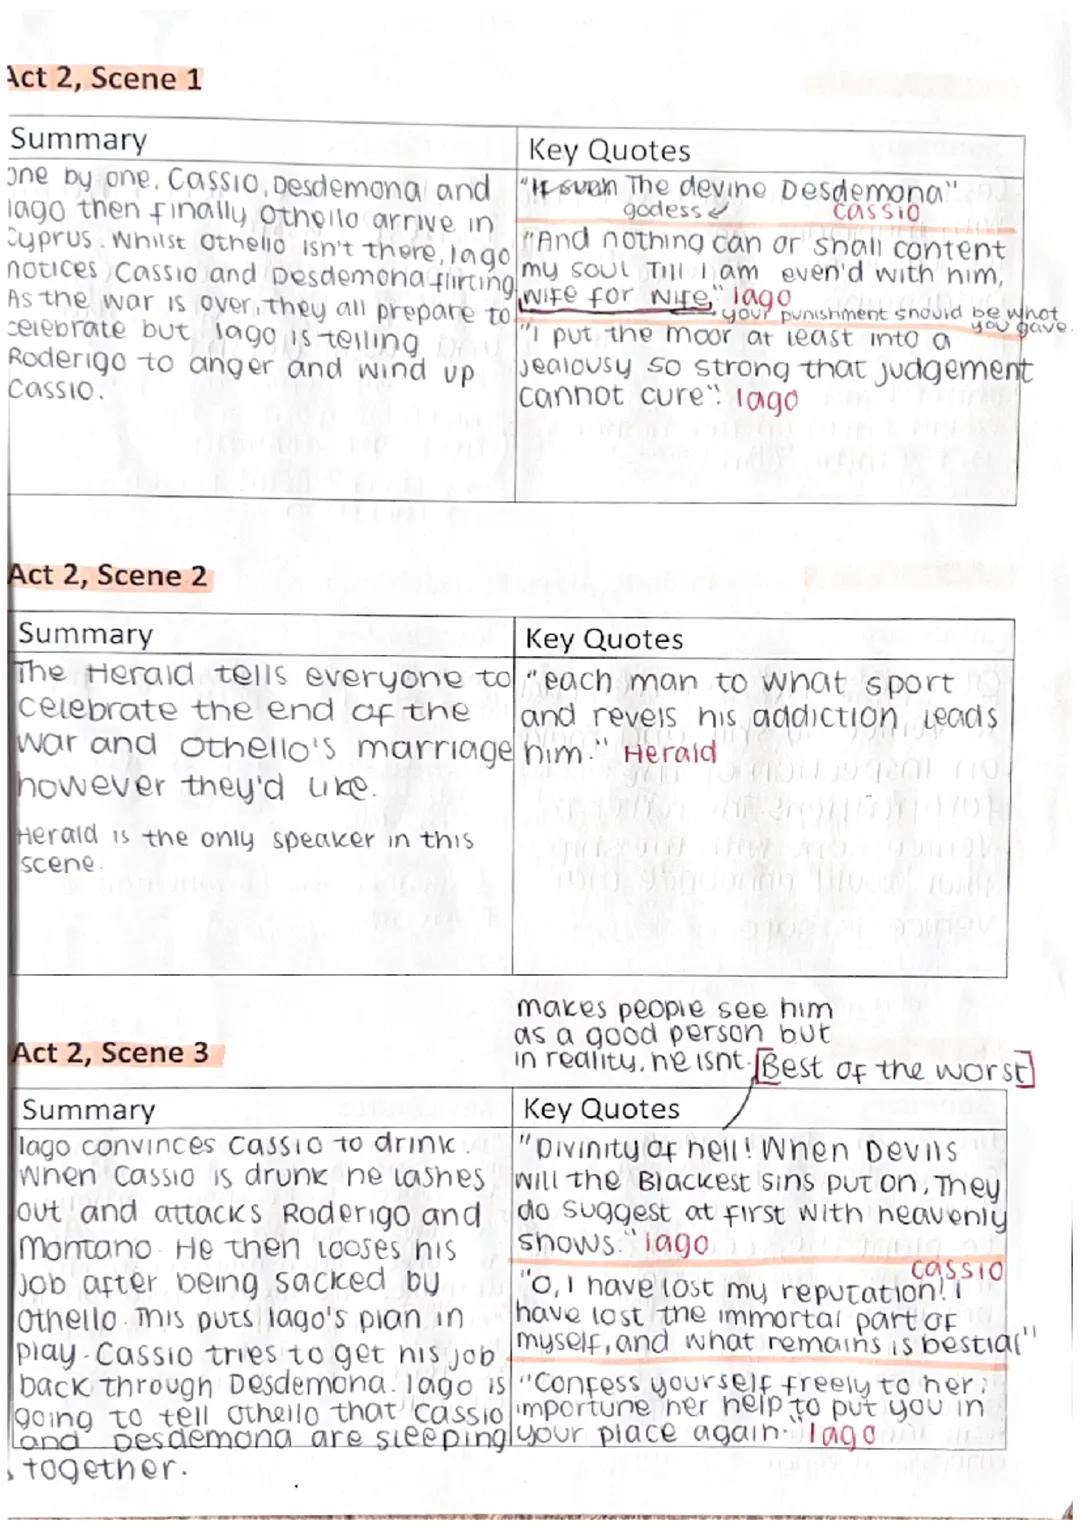 Act 2, Scene 1
Summary
One by one, Cassio, Desdemona and
Iago then finally Othello arrive in
Cyprus. Whilst Othello isn't there, Iago
notices Cassio and Desdemona flirting.
As the war is over, they all prepare to
celebrate but Iago is telling
Roderigo to anger and wind up
Cassio.
Key Quotes
The devine Desdemona"
godess
Cassio
"And nothing can or shall content
my soul Till I am even'd with him,
wife for wife," Iago
your punishment should be what
you gave.
"I put the moor at least into a
jealousy so strong that judgement
cannot cure". Iago
Act 2, Scene 2
Summary
The Herald tells everyone to
celebrate the end of the
war and Othello's marriage
however they'd like.
Herald is the only speaker in this
scene.
Key Quotes
"each man to what sport
and revels his addiction leads
him." Herald
makes people see him
as a good person but
in reality, he isnt. [Best of the worst]
Act 2, Scene 3
Summary
Iago convinces Cassio to drink.
When Cassio is drunk he lashes
out and attacks Roderigo and
Montano. He then looses his
job after being sacked by
Othello. This puts Iago's plan in
play. Cassio tries to get his job
back through Desdemona. Iago is
going to tell Othello that Cassio
and Desdemona are sleeping
together.
Key Quotes
"Divinity of hell! When Devils
will the Blackest sins put on, They
do suggest at first with heavenly
shows." Iago
Cassio
"O, I have lost my reputation! I
have lost the immortal part of
myself, and what remains is bestial"
"Confess yourself freely to her;
importune her help to put you in
your place again." Iago